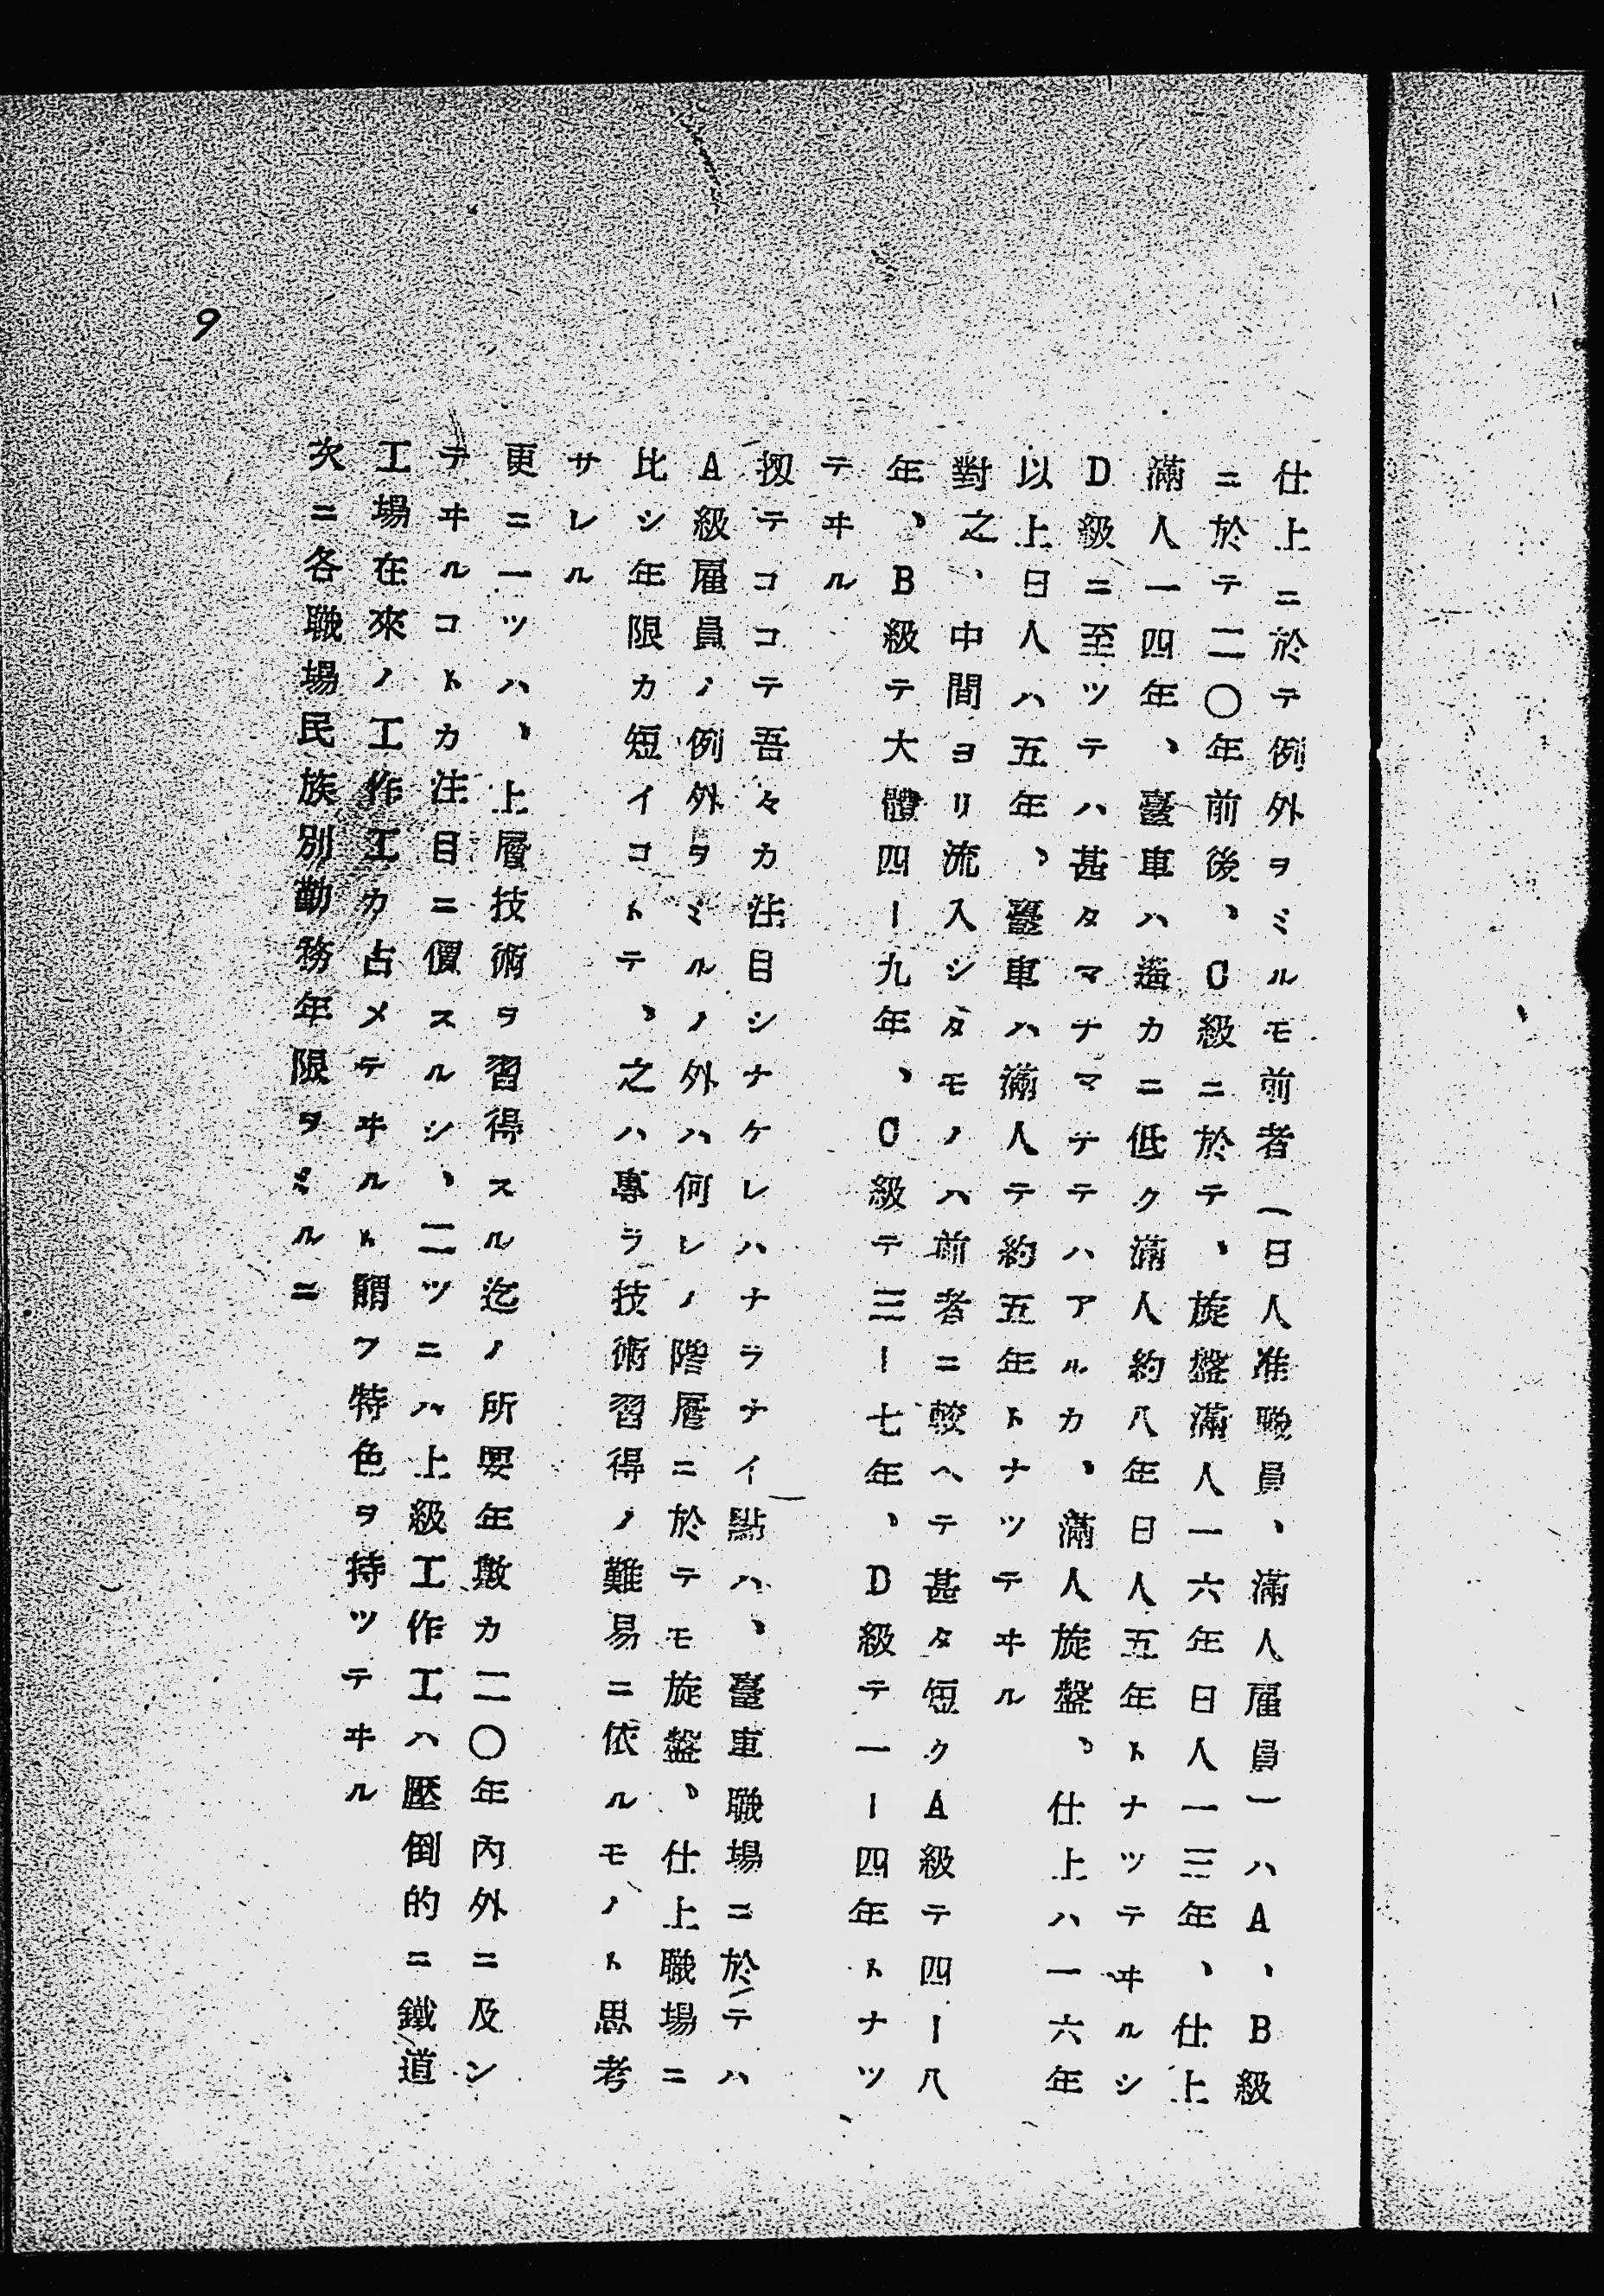 仕上ニ於テ例外ヲミルモ前者(日人准職員、滿人雇員)ハA、B級
ニ於テ二〇年前後、C級ニ於テ、旋盤滿人一六年日人一三年、仕上
滿人一四年、臺車ハ遙カニ低ク滿人約八年日人五年トナツテヰルシ
D級ニ至ツテハ甚タマチマチテハアルカ、滿人旋盤、仕上ハ一六年
以上日人ハ五年、臺車ハ滿人テ約五年トナツテヰル
對之、中間ヨリ流入シタモノハ前者ニ較ヘテ甚タ短クA級テ四ー八
年、B級テ大體四ー九年、C級テ三ー七年、D級テ一ー四年トナツ
テヰル
扨テココテ吾々カ注目シナケレハナラナイ點ハ、臺車職場ニ於テハ
A級雇員ノ例外ヲミルノ外ハ何レノ階層ニ於テモ旋盤、仕上職場ニ
比シ年限カ短イコトテ、之ハ專ラ技術習得ノ難易ニ依ルモノト思考
サレル
更ニ一ツハ、上層技術ヲ習得スル迄ノ所要年數カ二〇年內外ニ及ン
テヰルコトカ注目ニ價スルシ、二ツニハ上級工作工ハ壓倒的ニ鐵道
工場在來ノ工作工カ占メテヰルト謂フ特色ヲ持ツテヰル
次ニ各職場民族別勤務年限ヲミルニ
9